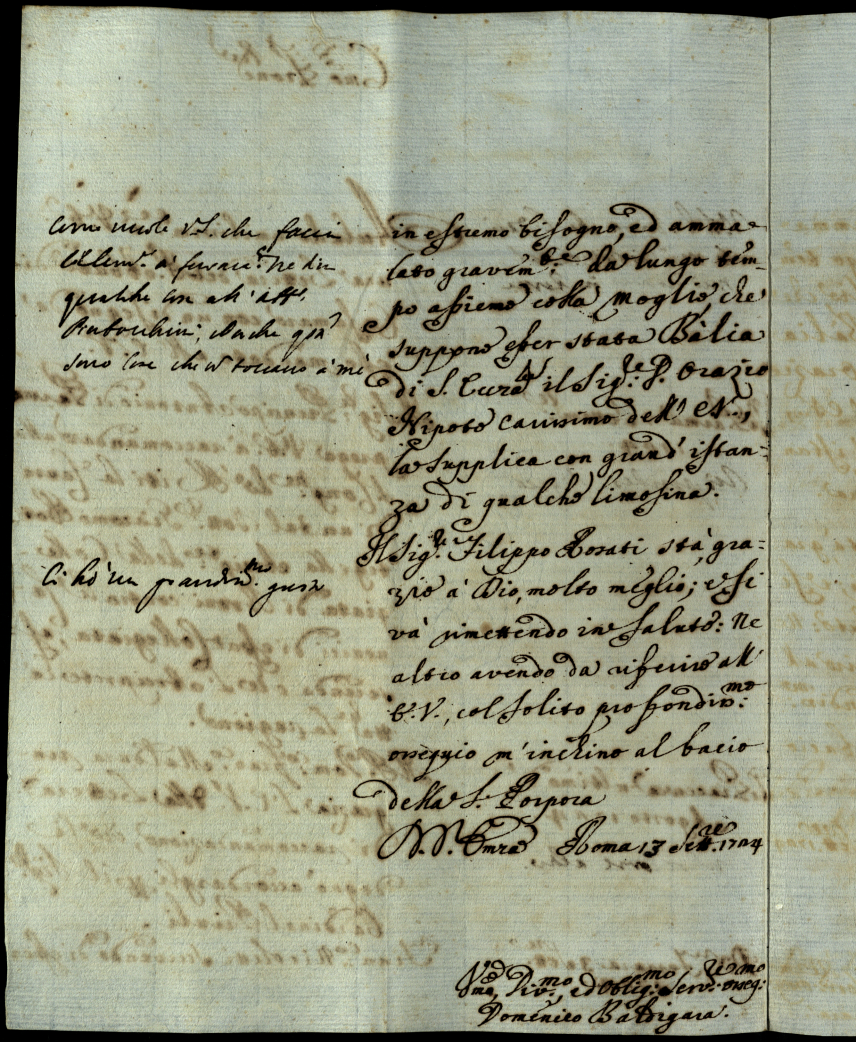 Come vuole V.S. che facci
qualche cosa all'
sono cose che toccano à mè
in estremo bisogno, ed amma-
lato gravem.te da lungo tem-
po assieme colla moglie, che
suppone esser stata Bàlia
di S. Cura il Sig.re P. Orazio
Nipote carissimo dell' E.V.,
la supplica con grand' istan-
za di qualche limosina.
Il Sig.re Filippo Rosati stà, gra-
zie à Dio, molto meglio; e si
và rimettendo in salute: Ne
altro avendo da riferire all'
E.V., col solito profondis.mo
ossequio m'inchino al bacio
Ci hò un grandis.mo gusto
della S. Porpora
D. V. Emza Roma 13 Sett.re 1724
Um.o, Div.mo, ed Oblig.mo Serv.re osseq.mo
Domenico Baldigara.